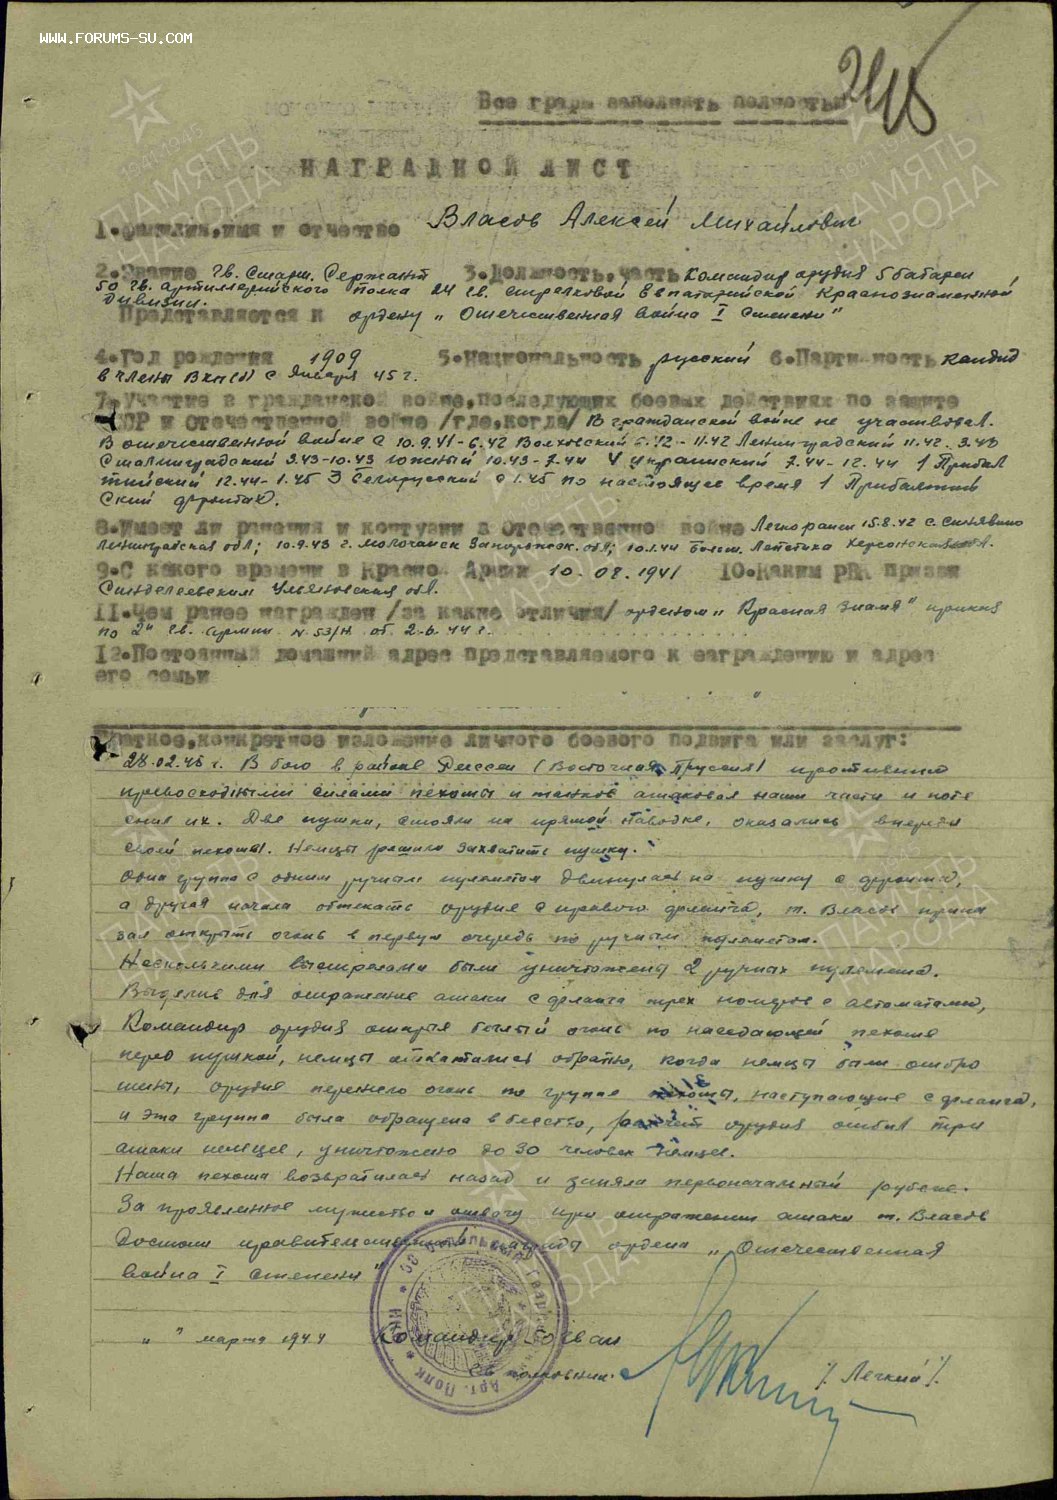 WWW.FORUMS-SU.COM
Все графы заполнять полностью
НАГРАДНОЙ ЛИСТ
1.Фамилия,имя и отчество Власов Алексей Михайлович
2.Звание гв. старш. Сержант 3.Должность,часть Командир орудия 5 батареи
50 гв. артиллерийского полка 24 гв. стрелковой Евпаторийской Краснознаменной
дивизии.
Представляется к ордену „Отечественная война I степени"
4.Год рождения 1909 5.Национальность русский 6.Партийность кандид
в члены ВКП(б) с Января 45 г.
7.Участие в гражданской войне,последующих боевых действиях по защите
СССР и Отечественной войне /где,когда/ В гражданской войне не участвовал.
В отечественной войне с 10.9.41-6.42 Волховский 6.42-11.42 Ленинградский 11.42. 3.43
Сталинградский 3.43-10.43 Южный 10.43-7.44 4 Украинский 7.44-12.44 1 Прибал
тийский 12.44-1.45 3 Белорусский с 1.45 по настоящее время 1 Прибалтий
ский фронтах.
8.Имеет ли ранения и контузии в Отечественной войне Легко ранен 15.8.42 с. Синявино
Ленинградская обл; 10.9.43 г. Молочанск Запорожск. обл; 10.1.44 Больш. Лепетиха Херсонская обл.
9.С какого времени в Красной Армии 10.08.1941 10.Каким РВК призван
Сенгелеевским Ульяновская обл.
11.Чем ранее награжден /за какие отличия/ орденом „Красная Знамя" приказ
по 2й гв. армии N.53/Н от 2.6.44 г.
12.Постоянный домашний адрес представляемого к награждению и адрес
его семьи
Краткое,конкретное изложение личного боевого подвига или заслуг:
28.02.45 г. В бою в районе (Восточная Пруссия) противник
превосходными силами пехоты и танков атаковал наши части и поте
снил их. Две пушки, стояли на прямой наводке, оказались впереди
своей пехоты. Немцы решили захватить пушку.
Одна группа с одним ручным пулеметом двинулась на пушку с фронта,
а другая начала обтекать орудия с правого фланга, т. Власов прика
зал открыть огонь в первую очередь по ручным пулеметам.
Несколькими выстрелами были уничтожены 2 ручных пулемета.
Выделив для отражение атаки с фланга трех номеров с автоматами,
Командир орудия открыл беглый огонь по наседающей пехоте
перед пушкой, немцы откатились обратно, когда немцы были отбро
шены, орудие перенесло огонь по группе пехоты, наступающие с фланга,
и эта группа была обращена в бегство, расчет орудия отбил три
атаки немцев, уничтожено до 30 человек немцев.
Наша пехота возвратилась назад и заняла первоначальный рубеж.
За проявленное мужество и отвагу при отражении атаки т. Власов
достоин правительственной награды ордена „Отечественная
война I степени"
„ " марта 1944 Командир 50 гвап
гв полковник. /. Легкий /.
Арт. Полк
ПАМЯТЬ НАРОДА